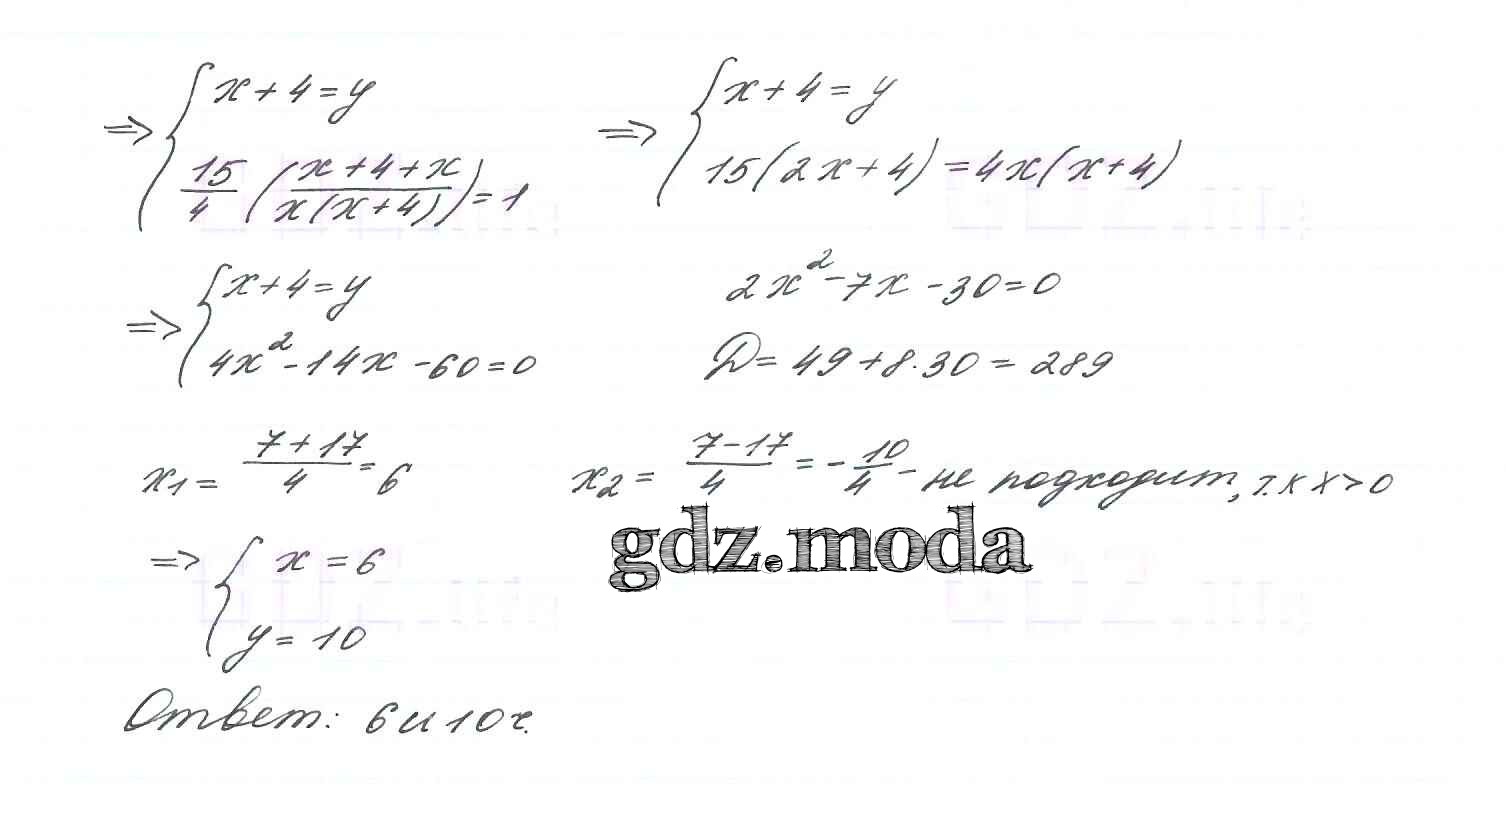 ⇒ { x + 4 = y
15/4 ( (x + 4 + x) / (x(x + 4)) ) = 1
⇒ { x + 4 = y
15(2x + 4) = 4x(x + 4)
⇒ { x + 4 = y
4x² - 14x - 60 = 0
2x² - 7x - 30 = 0
D = 49 + 8·30 = 289
x₁ = (7 + 17)/4 = 6
x₂ = (7 - 17)/4 = - 10/4 - не подходит, т.к x > 0
gdz.moda
⇒ { x = 6
y = 10
Ответ: 6 и 10 ч.